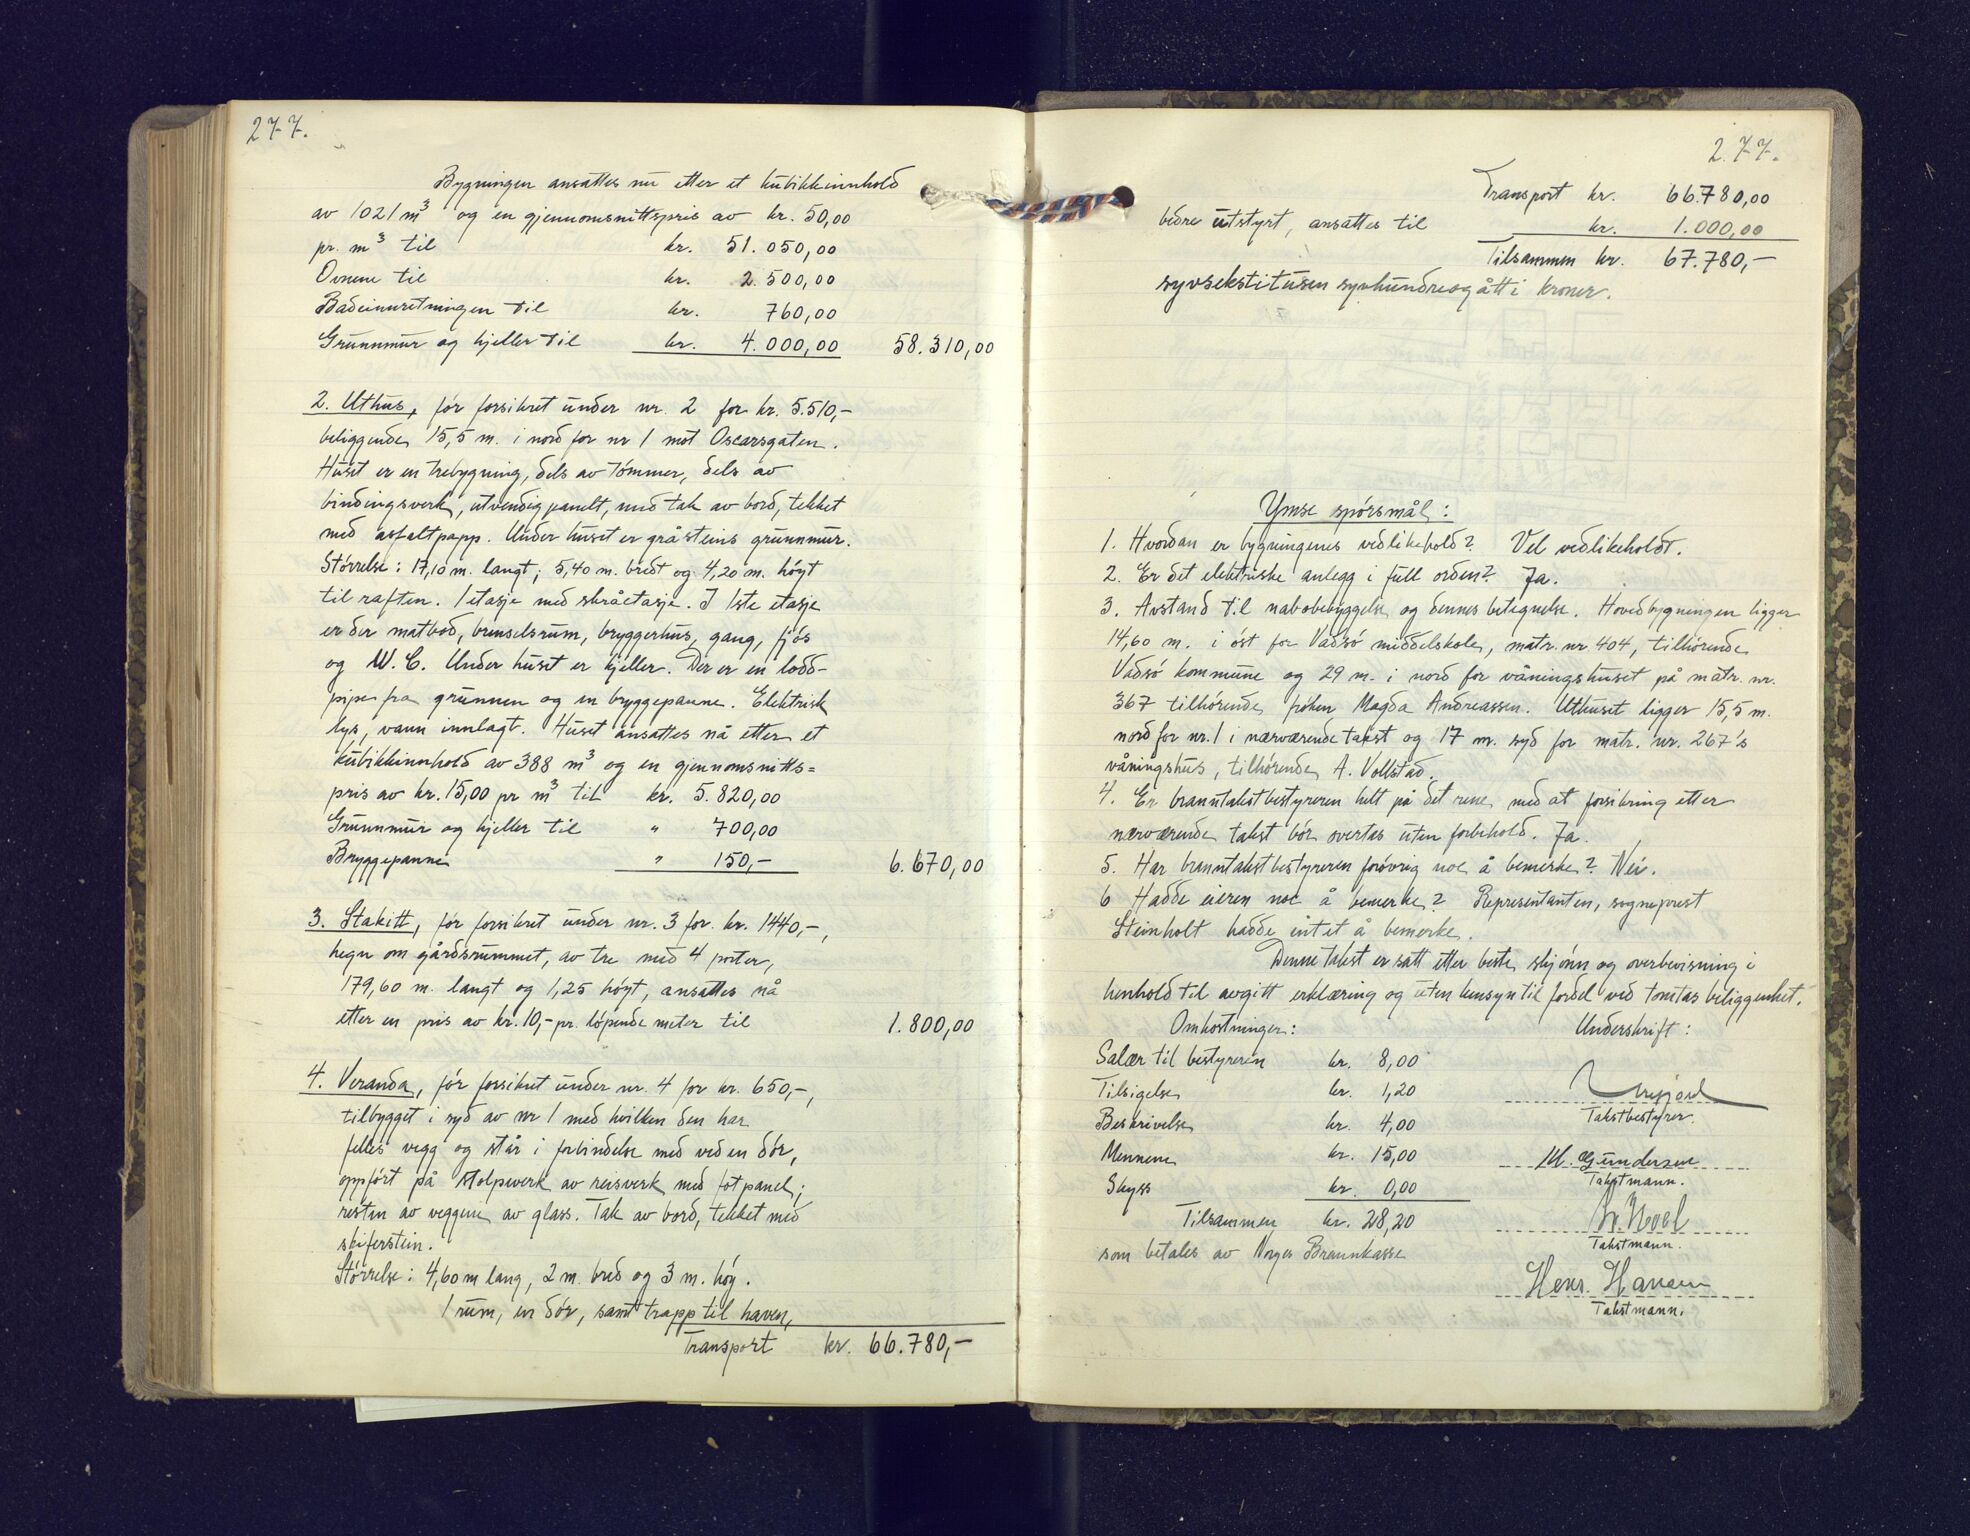 277.
Bygningen ansattes nu etter et kubikkinnhold
av 1021 m³ og en gjennomsnittspris av kr. 50,00
pr. m³ til kr. 51.050,00
Ovnene til kr. 2.500,00
Badeinnretningen til kr. 760,00
Grunnmur og kjeller til kr. 4.000,00 58.310,00
2. Uthus, før forsikret under nr. 2 for kr. 5.510,-
beliggende 15,5 m. i nord for nr 1 mot Oscarsgaten.
Huset er en trebygning, dels av tømmer, dels av
bindingsverk, utvendig panelt, med tak av bord, tekket
med asfaltpapp. Under huset er gråsteins grunnmur.
Størrelse: 17,10 m. langt; 5,40 m. bredt og 4,20 m. høyt
til raften. 1 etasje med skråetasje. I 1ste etasje
er der matbod, brenselsrum, bryggerhus, gang, fjøs
og W.C. Under huset er kjeller. Der er en lodd-
pipe fra grunnen og en bryggepanne. Elektrisk
lys, vann innlagt. Huset ansattes nå etter et
kubikkinnhold av 388 m³ og en gjennomsnitts=
pris av kr. 15,00 pr m³ til kr. 5.820,00
Grunnmur og kjeller til " 700,00
Bryggepanne " 150,- 6.670,00
3. Stakitt, før forsikret under nr. 3 for kr. 1440,-,
hegn om gårdsrummet, av tre med 4 porter,
179,60 m. langt og 1,25 høyt, ansattes nå
etter en pris av kr. 10,- pr. løpende meter til 1.800,00
4. Veranda, før forsikret under nr. 4 for kr. 650,-,
tilbygget i syd av nr 1 med hvilken den har
felles vegg og står i forbindelse med ved en dør,
oppført på stolpverk av reisverk med fotpanel;
resten av veggene av glass. Tak av bord, tekket med
skiferstein.
Størrelse: 4,60 m lang, 2 m. bred og 3 m. høy.
1 rum, en dør, samt trapp til haven,
Transport kr. 66.780,-
277.
Transport kr. 66.780,00
bedre utstyrt, ansattes til kr. 1.000,00
Tilsammen kr. 67.780,-
syvsekstitusen syvhundreogåtti kroner.
Ymse spørsmål:
1. Hvordan er bygningenes vedlikehold? Vel vedlikeholdt.
2. Er det elektriske anlegg i full orden? Ja.
3. Avstand til nabobebyggelse og dennes betegnelse. Hovedbygningen ligger
14,60 m. i øst for Vadsø middelskole, matr. nr. 404, tilhørende
Vadsø kommune og 29 m. i nord for våningshuset på matr. nr.
367 tilhørende frøken Magda Andreassen. Uthuset ligger 15,5 m.
nord for nr. 1 i nærværende takst og 17 m. syd for matr. nr. 267's
våningshus, tilhørende A. Vollstad.
4. Er branntakstbestyreren helt på det rene med at forsikring etter
nærværende takst bør overtas uten forbehold. Ja.
5. Har branntakstbestyreren forøvrig noe å bemerke? Nei.
6 Hadde eieren noe å bemerke? Representanten, sogneprest
Steinholt hadde intet å bemerke.
Denne takst er satt etter beste skjønn og overbevisning i
henhold til avgitt erklæring og uten hensyn til fordel ved tomtas beliggenhet.
Omkostninger: Underskrift:
Salær til bestyreren kr. 8,00
Tilsigelse kr. 1,20
Takstbestyrer.
Beskrivelse kr. 4,00
Mennene kr. 15,00 M. Gundersen
Takstmann.
Skyss kr. 0,00
Tilsammen kr. 28,20
Takstmann.
som betales av Norges Brannkasse
Hans. Hansen
Takstmann.